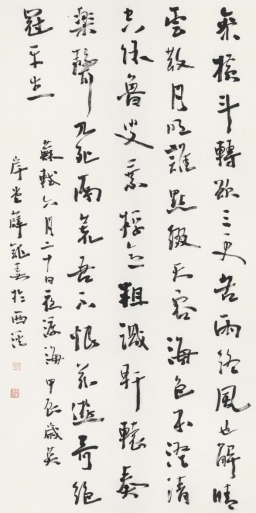 參橫斗轉欲三更苦雨終風也解晴
雲散月明誰點綴天容海色本澄清
空餘魯叟乘桴意粗識軒轅奏
樂聲九死南荒吾不恨茲遊奇絕
冠平生
蘇軾六月二十日夜渡海甲辰歲
薛龍春於西溪